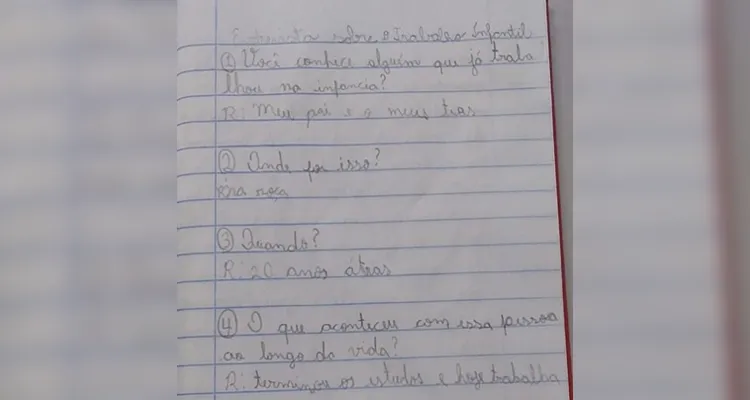 Entrevista sobre o Trabalho Infantil
① Você conhece alguém que já traba
lhou na infancia?
R: Meu pai e o meus tios
② Onde foi isso?
R: na roça
③ Quando?
R: 20 anos átras
④ O que aconteceu com essa pessoa
ao longo da vida?
R: terminou os estudos e hoje trabalha